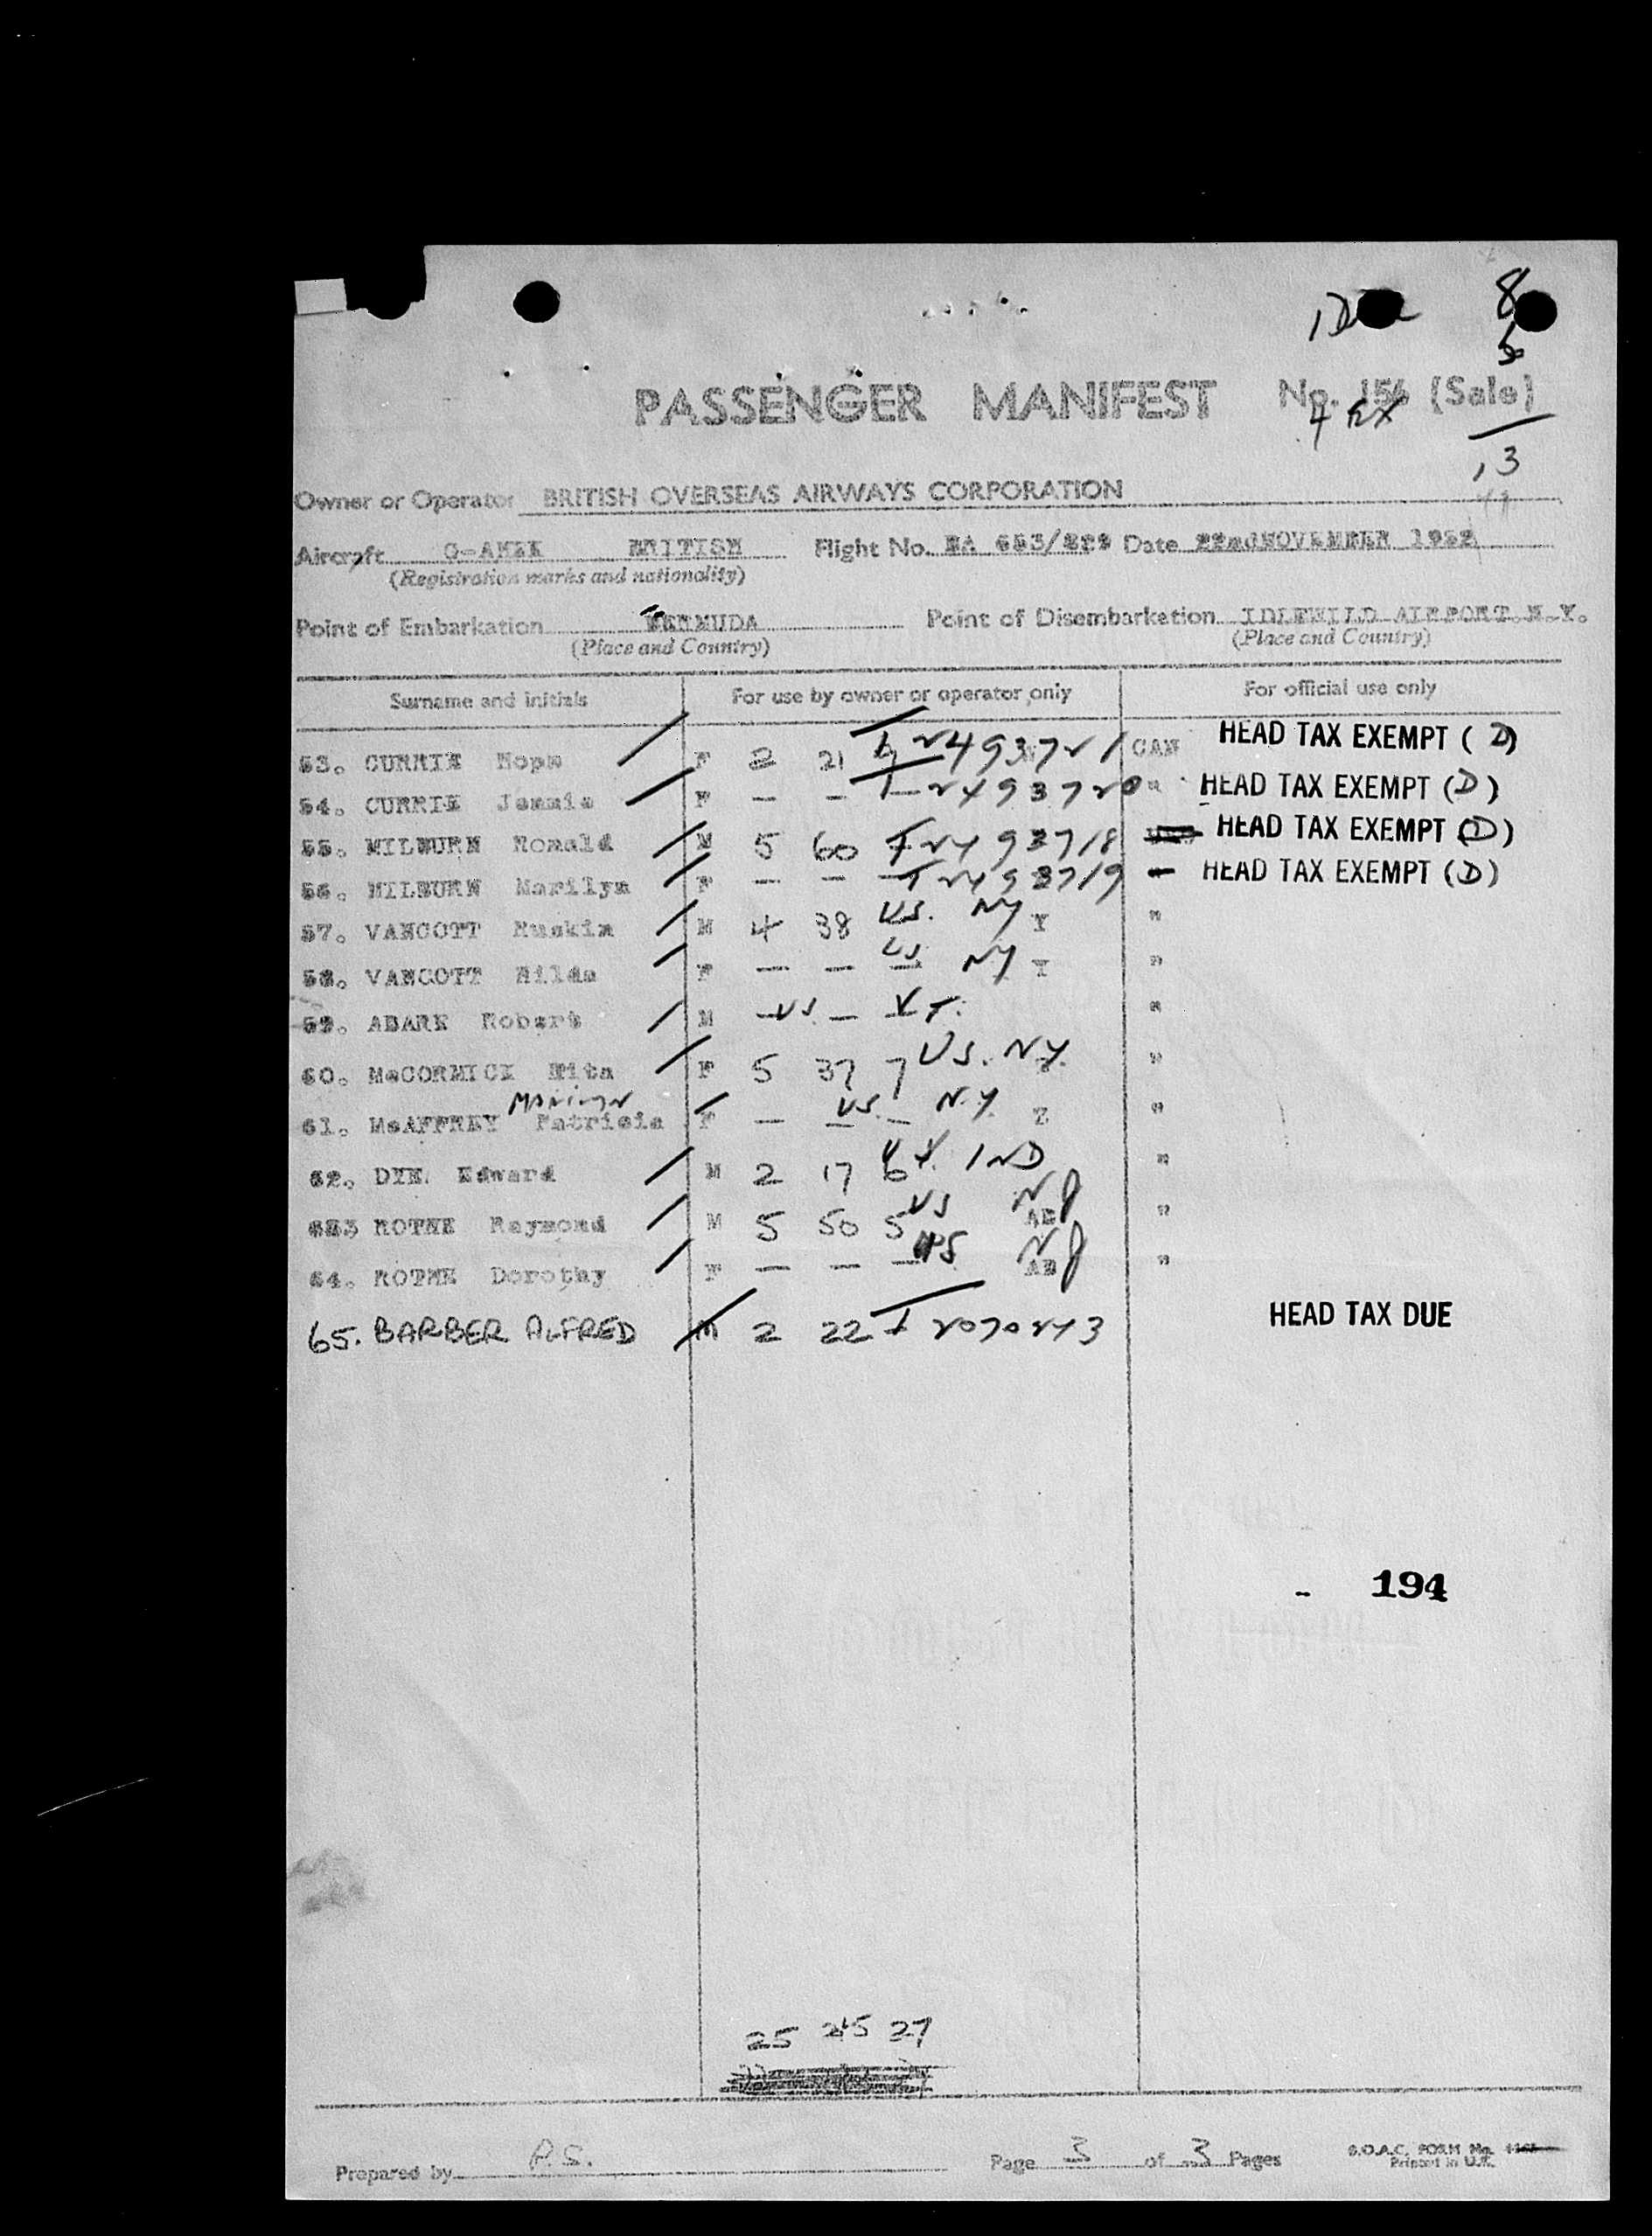 8
PASSENGER MANIFEST No. 156 (Sale)
4 EX
13
Owner or Operator BRITISH OVERSEAS AIRWAYS CORPORATION
Aircraft BRITISH Flight No. BA 653/ Date 22nd NOVEMBER 1952
(Registration marks and nationality)
Point of Embarkation BERMUDA Point of Disembarketion IDLEWILD AIRPORT.N.Y.
(Place and Country) (Place and Country)
Surname and initials For use by owner or operator only For official use only
53. CURRIE Hope F 2 21 2493721 CAN HEAD TAX EXEMPT (D)
54. CURRIE Jennie F — — 2493720 " HEAD TAX EXEMPT (D)
55. MILBURN Ronald M 5 60 T 2493718 HEAD TAX EXEMPT (D)
56. MILBURN Marilyn F — — T 2493719 HEAD TAX EXEMPT (D)
57. VANCOTT Ruskin M 4 38 US. NY "
58. VANCOTT Hilda F — — — US NY "
59. ABARE Robert M — US. — VT. "
60. McCORMICK Rita F 5 37 7 US. NY. "
61. McAFFREY Patricia F — US. — N.Y. "
62. DYE. Edward M 2 17 6 IND "
ROTHE Raymond M 5 50 5 US NJ "
64. ROTHE Dorothy F — — — US NJ "
65. BARBER ALFRED M 2 22 T 2070243 HEAD TAX DUE
- 194
25 27
Prepared by P.S. Page 3 of 3 Pages B.O.A.C. FORM No.
Printed in U.K.